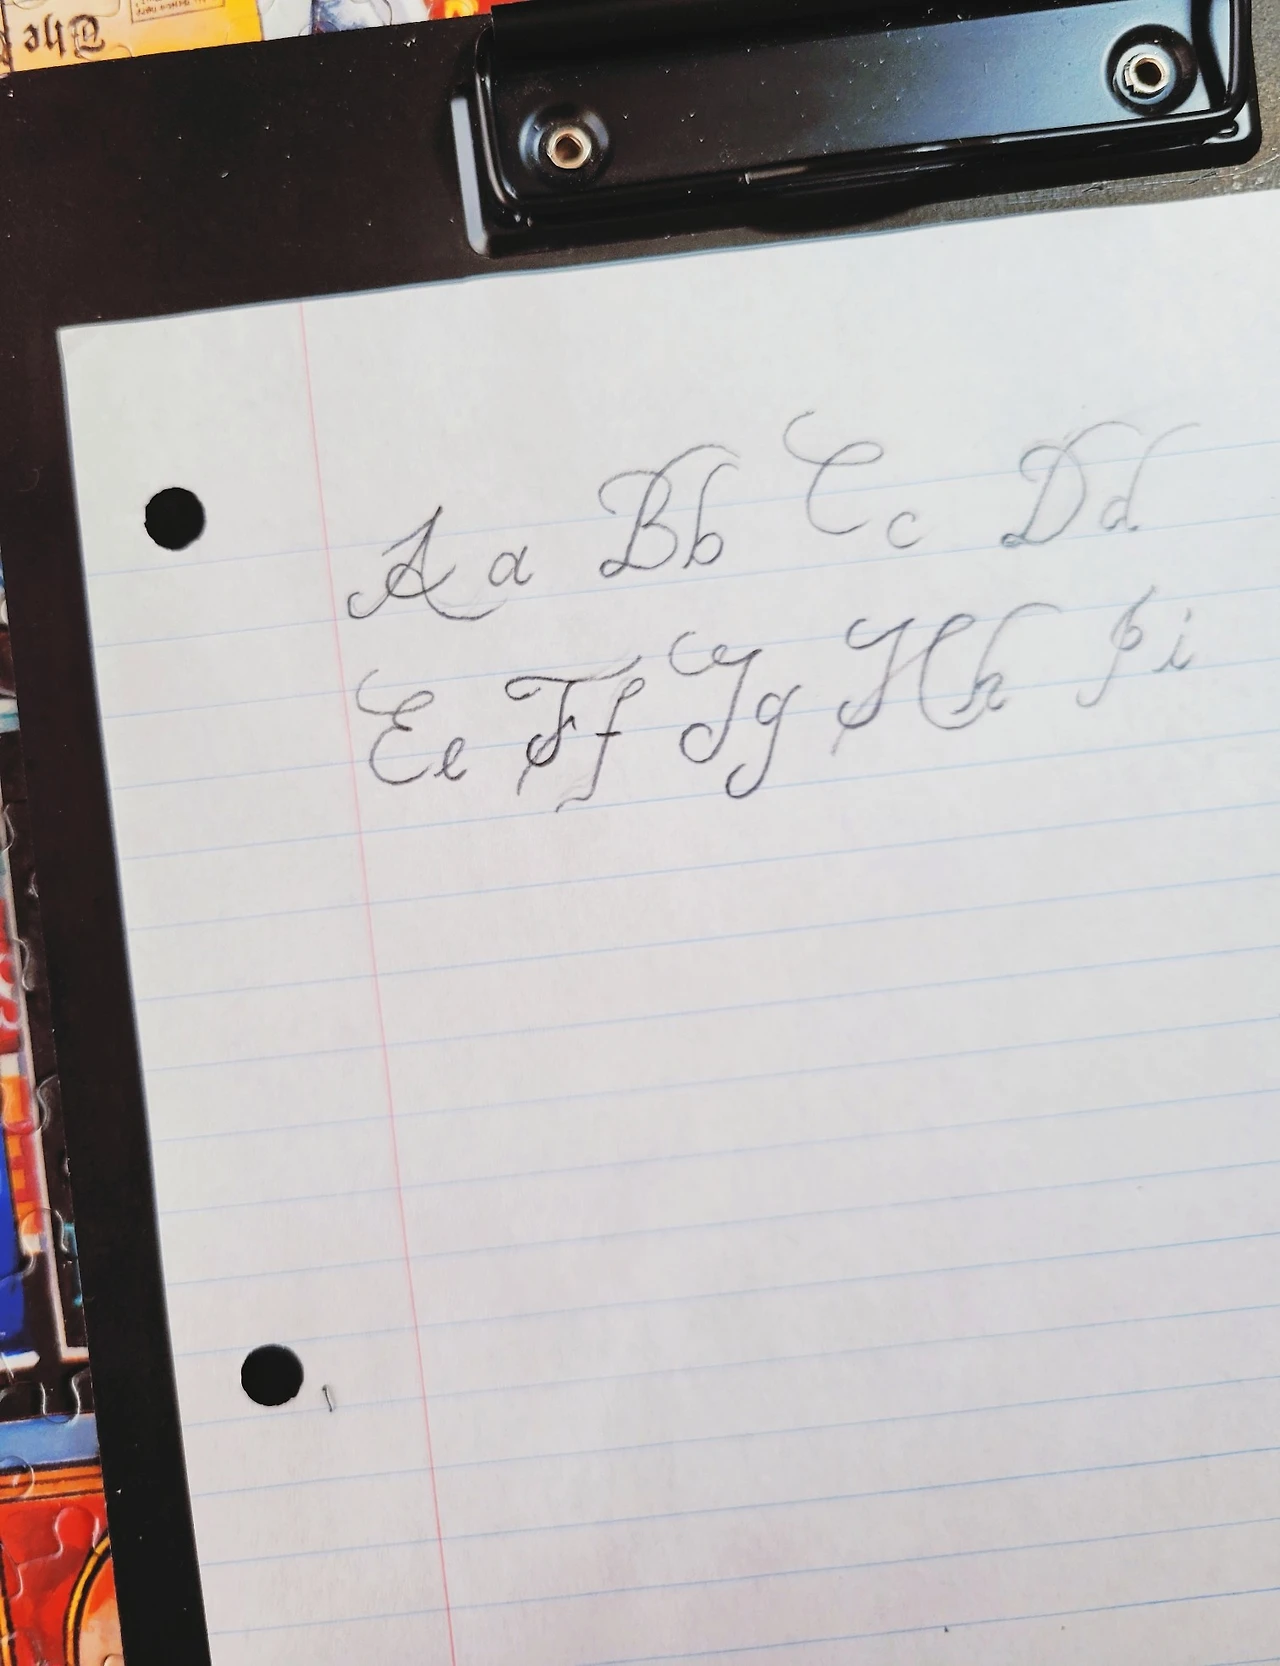 The
Aa Bb Cc Dd
Ee Ff Gg Hh Ii